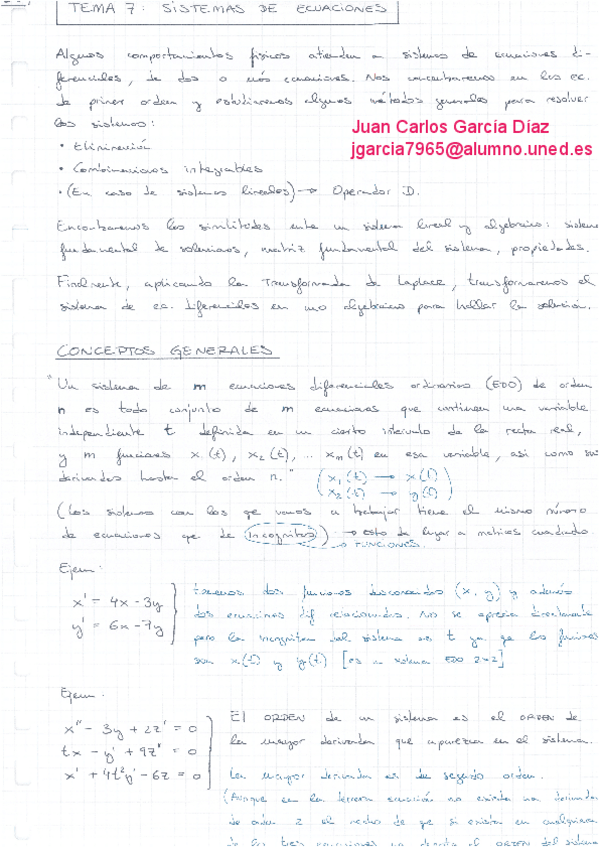 TEMA 7: SISTEMAS DE ECUACIONES
Algunos comportamientos físicos atienden a sistemas de ecuaciones di-
ferenciales, de dos o más ecuaciones. Nos concentraremos en las ec.
de primer orden y estudiaremos algunos métodos generales para resolver
los sistemas:
Juan Carlos García Díaz
jgarcia7965@alumno.uned.es
• Eliminación
• Combinaciones integrables
• (En caso de sistemas lineales) → Operador D.
Encontraremos las similitudes entre un sistema lineal y algebraico: sistema
fundamental de soluciones, matriz fundamental del sistema, propiedades.
Finalmente, aplicando la Transformada de Laplace, transformaremos el
sistema de ec. diferenciales en uno algebraico para hallar la solución.
CONCEPTOS GENERALES
"Un sistema de m ecuaciones diferenciales ordinarias (EDO) de orden
n es todo conjunto de m ecuaciones que contienen una variable
independiente t definida en un cierto intervalo de la recta real,
y m funciones x₁(t), x₂(t), ... xₘ(t) en esa variable, así como sus
derivadas hasta el orden n."
(x₁(t) → x(t)
x₂(t) → y(t))
(Los sistemas con los que vamos a trabajar tiene el mismo número
de ecuaciones que de incógnitas) → esto da lugar a matrices cuadradas
→ FUNCIONES.
Ejem:
x' = 4x - 3y
y' = 6x - 7y
Tenemos dos funciones desconocidas (x, y) y además
dos ecuaciones dif relacionadas. No se aprecia directamente
pero la incógnita del sistema es t ya que las funciones
son x(t) y y(t) [es un sistema EDO 2x2]
Ejem.
x'' - 3y + 2z' = 0
tx - y' + 9z'' = 0
x' + 4t²y' - 6z = 0
El ORDEN de un sistema es el ORDEN de
la mayor derivada que aparezca en el sistema.
La mayor derivada es de segundo orden.
(Aunque en la tercera ecuación no exista una derivada
de orden 2 el hecho de que si exista en cualquiera
de las tres ecuaciones el ORDEN del sistema